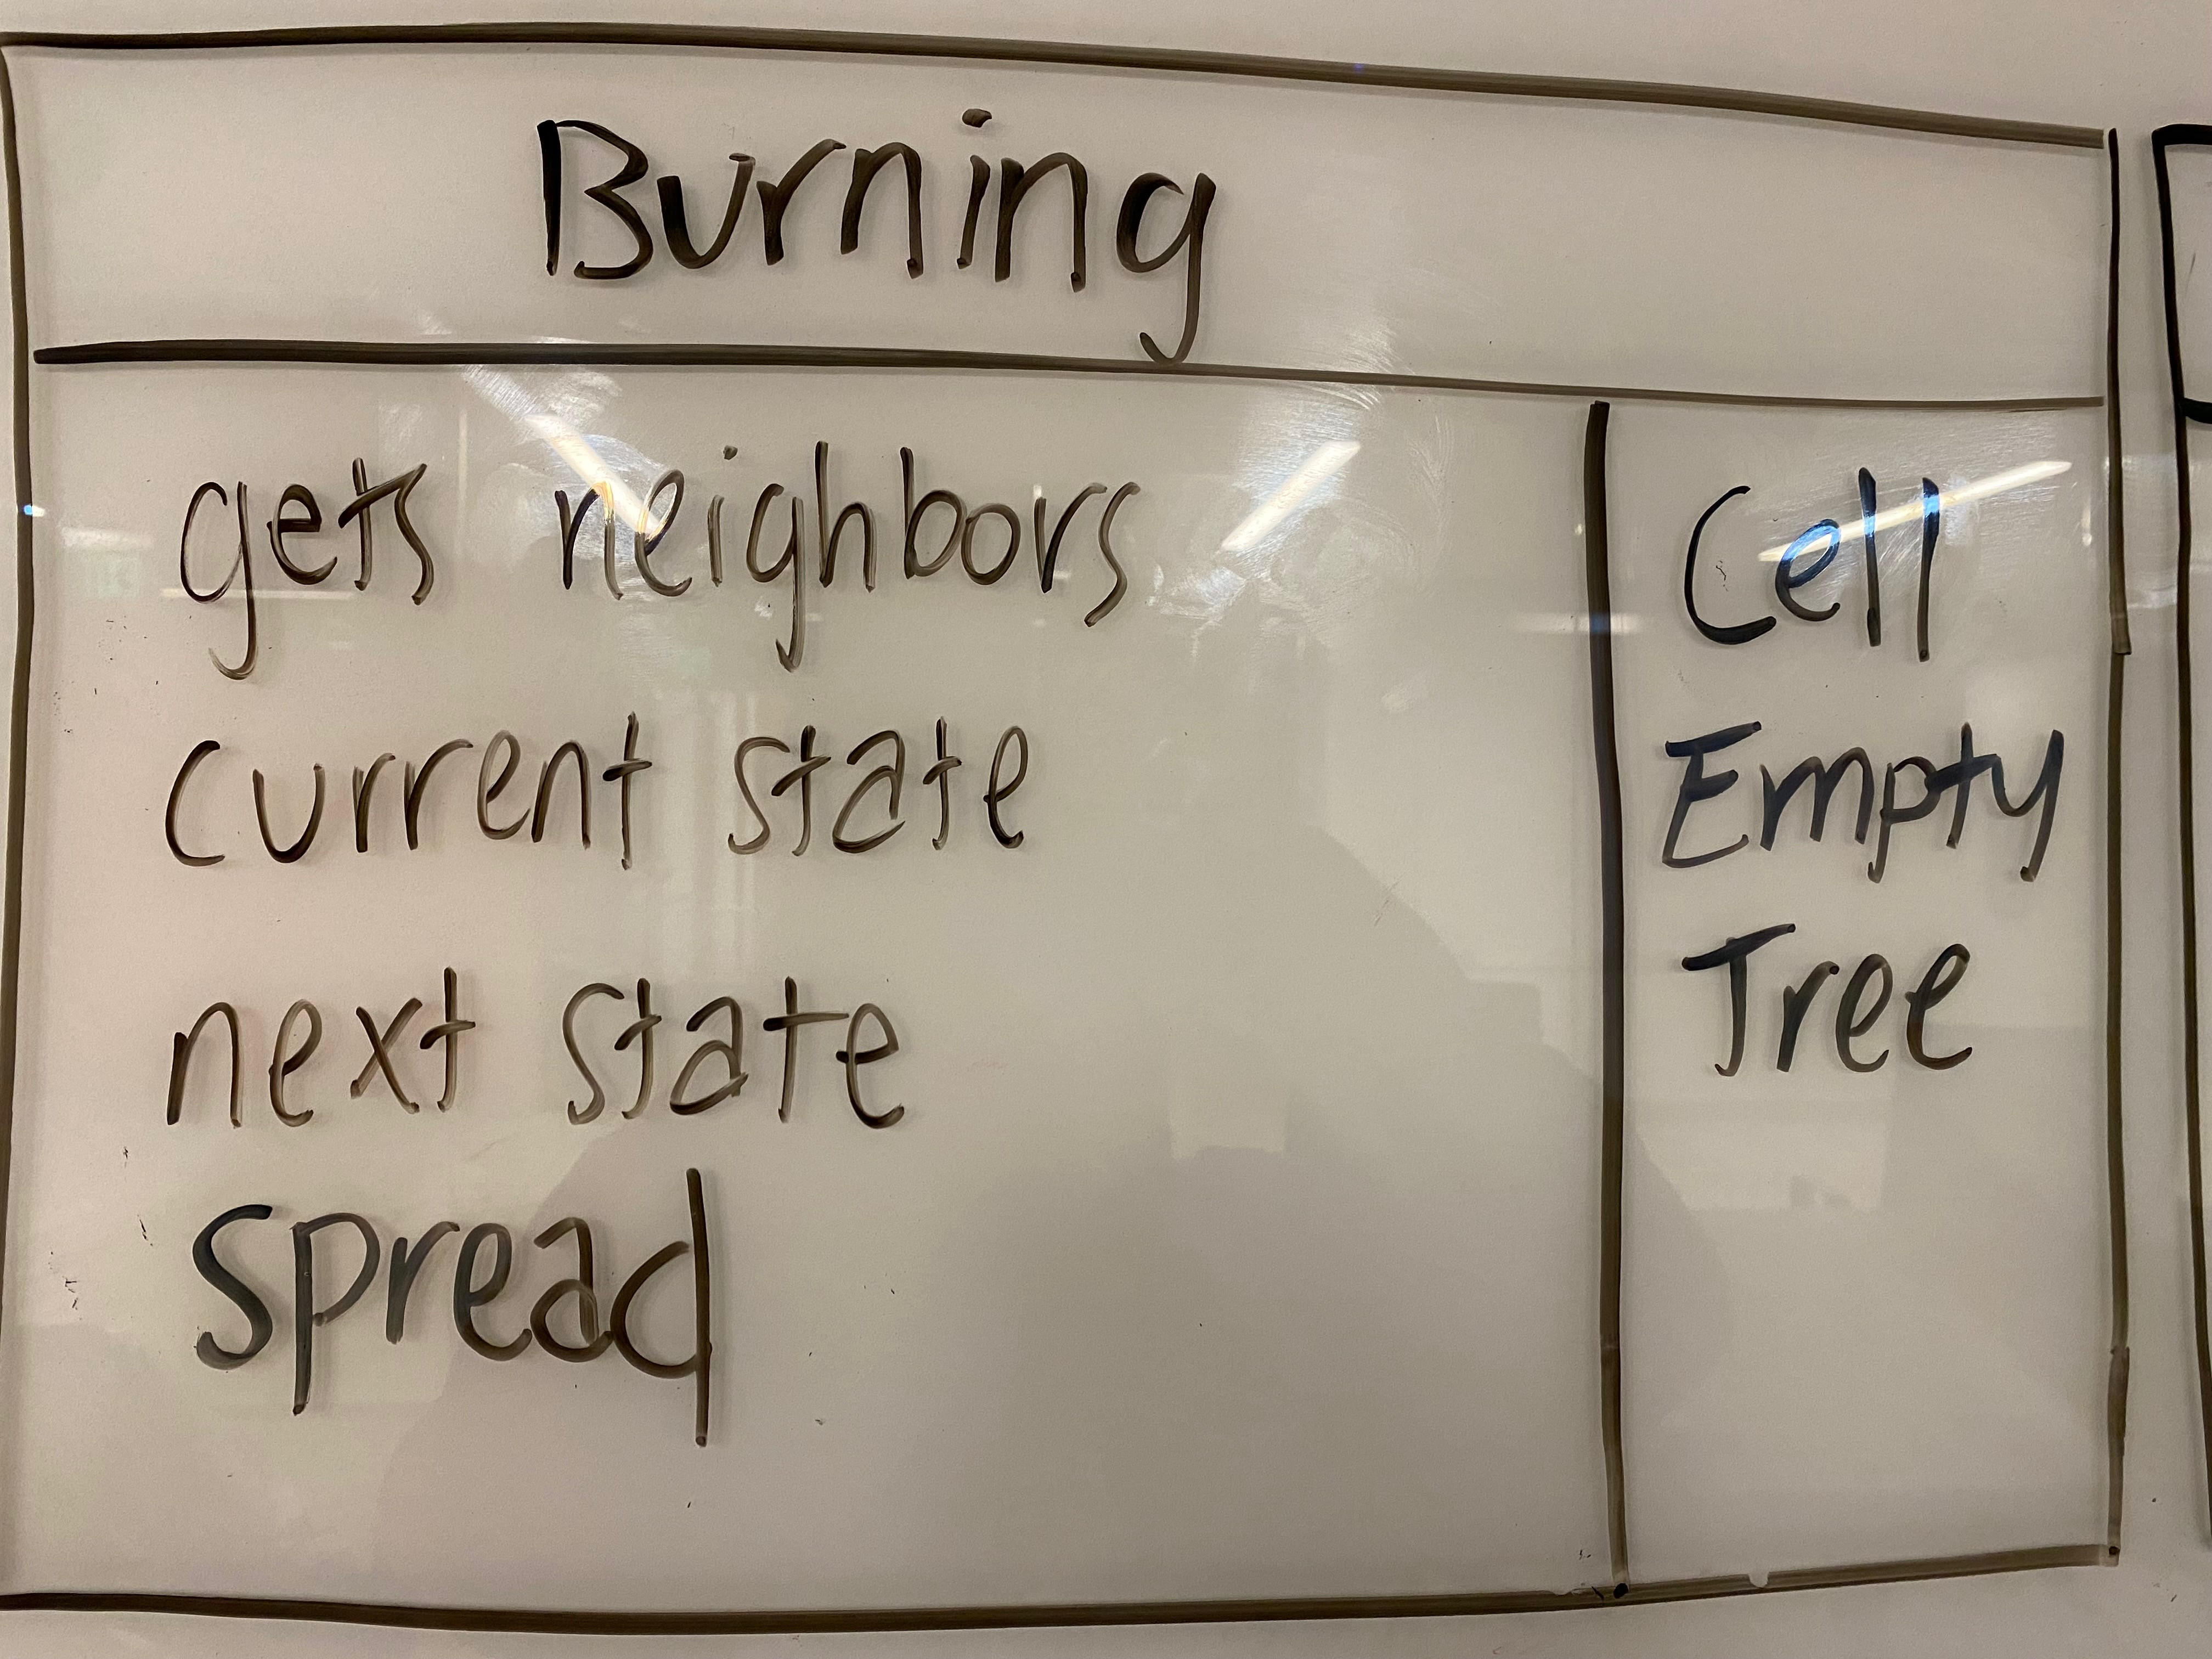 Burning
gets neighbors
current state
next state
spread
Cell
Empty
Tree